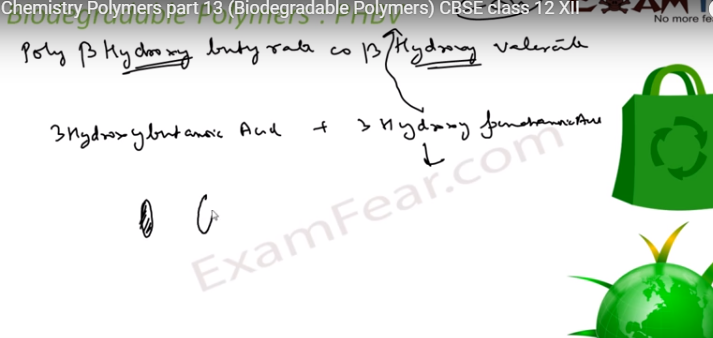 Chemistry Polymers part 13 (Biodegradable Polymers) CBSE class 12 XII
Biodegradable Polymers : PHBV
No more fe
Poly β Hydroxy butyrate co β Hydroxy valerate
3 Hydroxybutanoic Acid + 3 Hydroxy
ExamFear.com